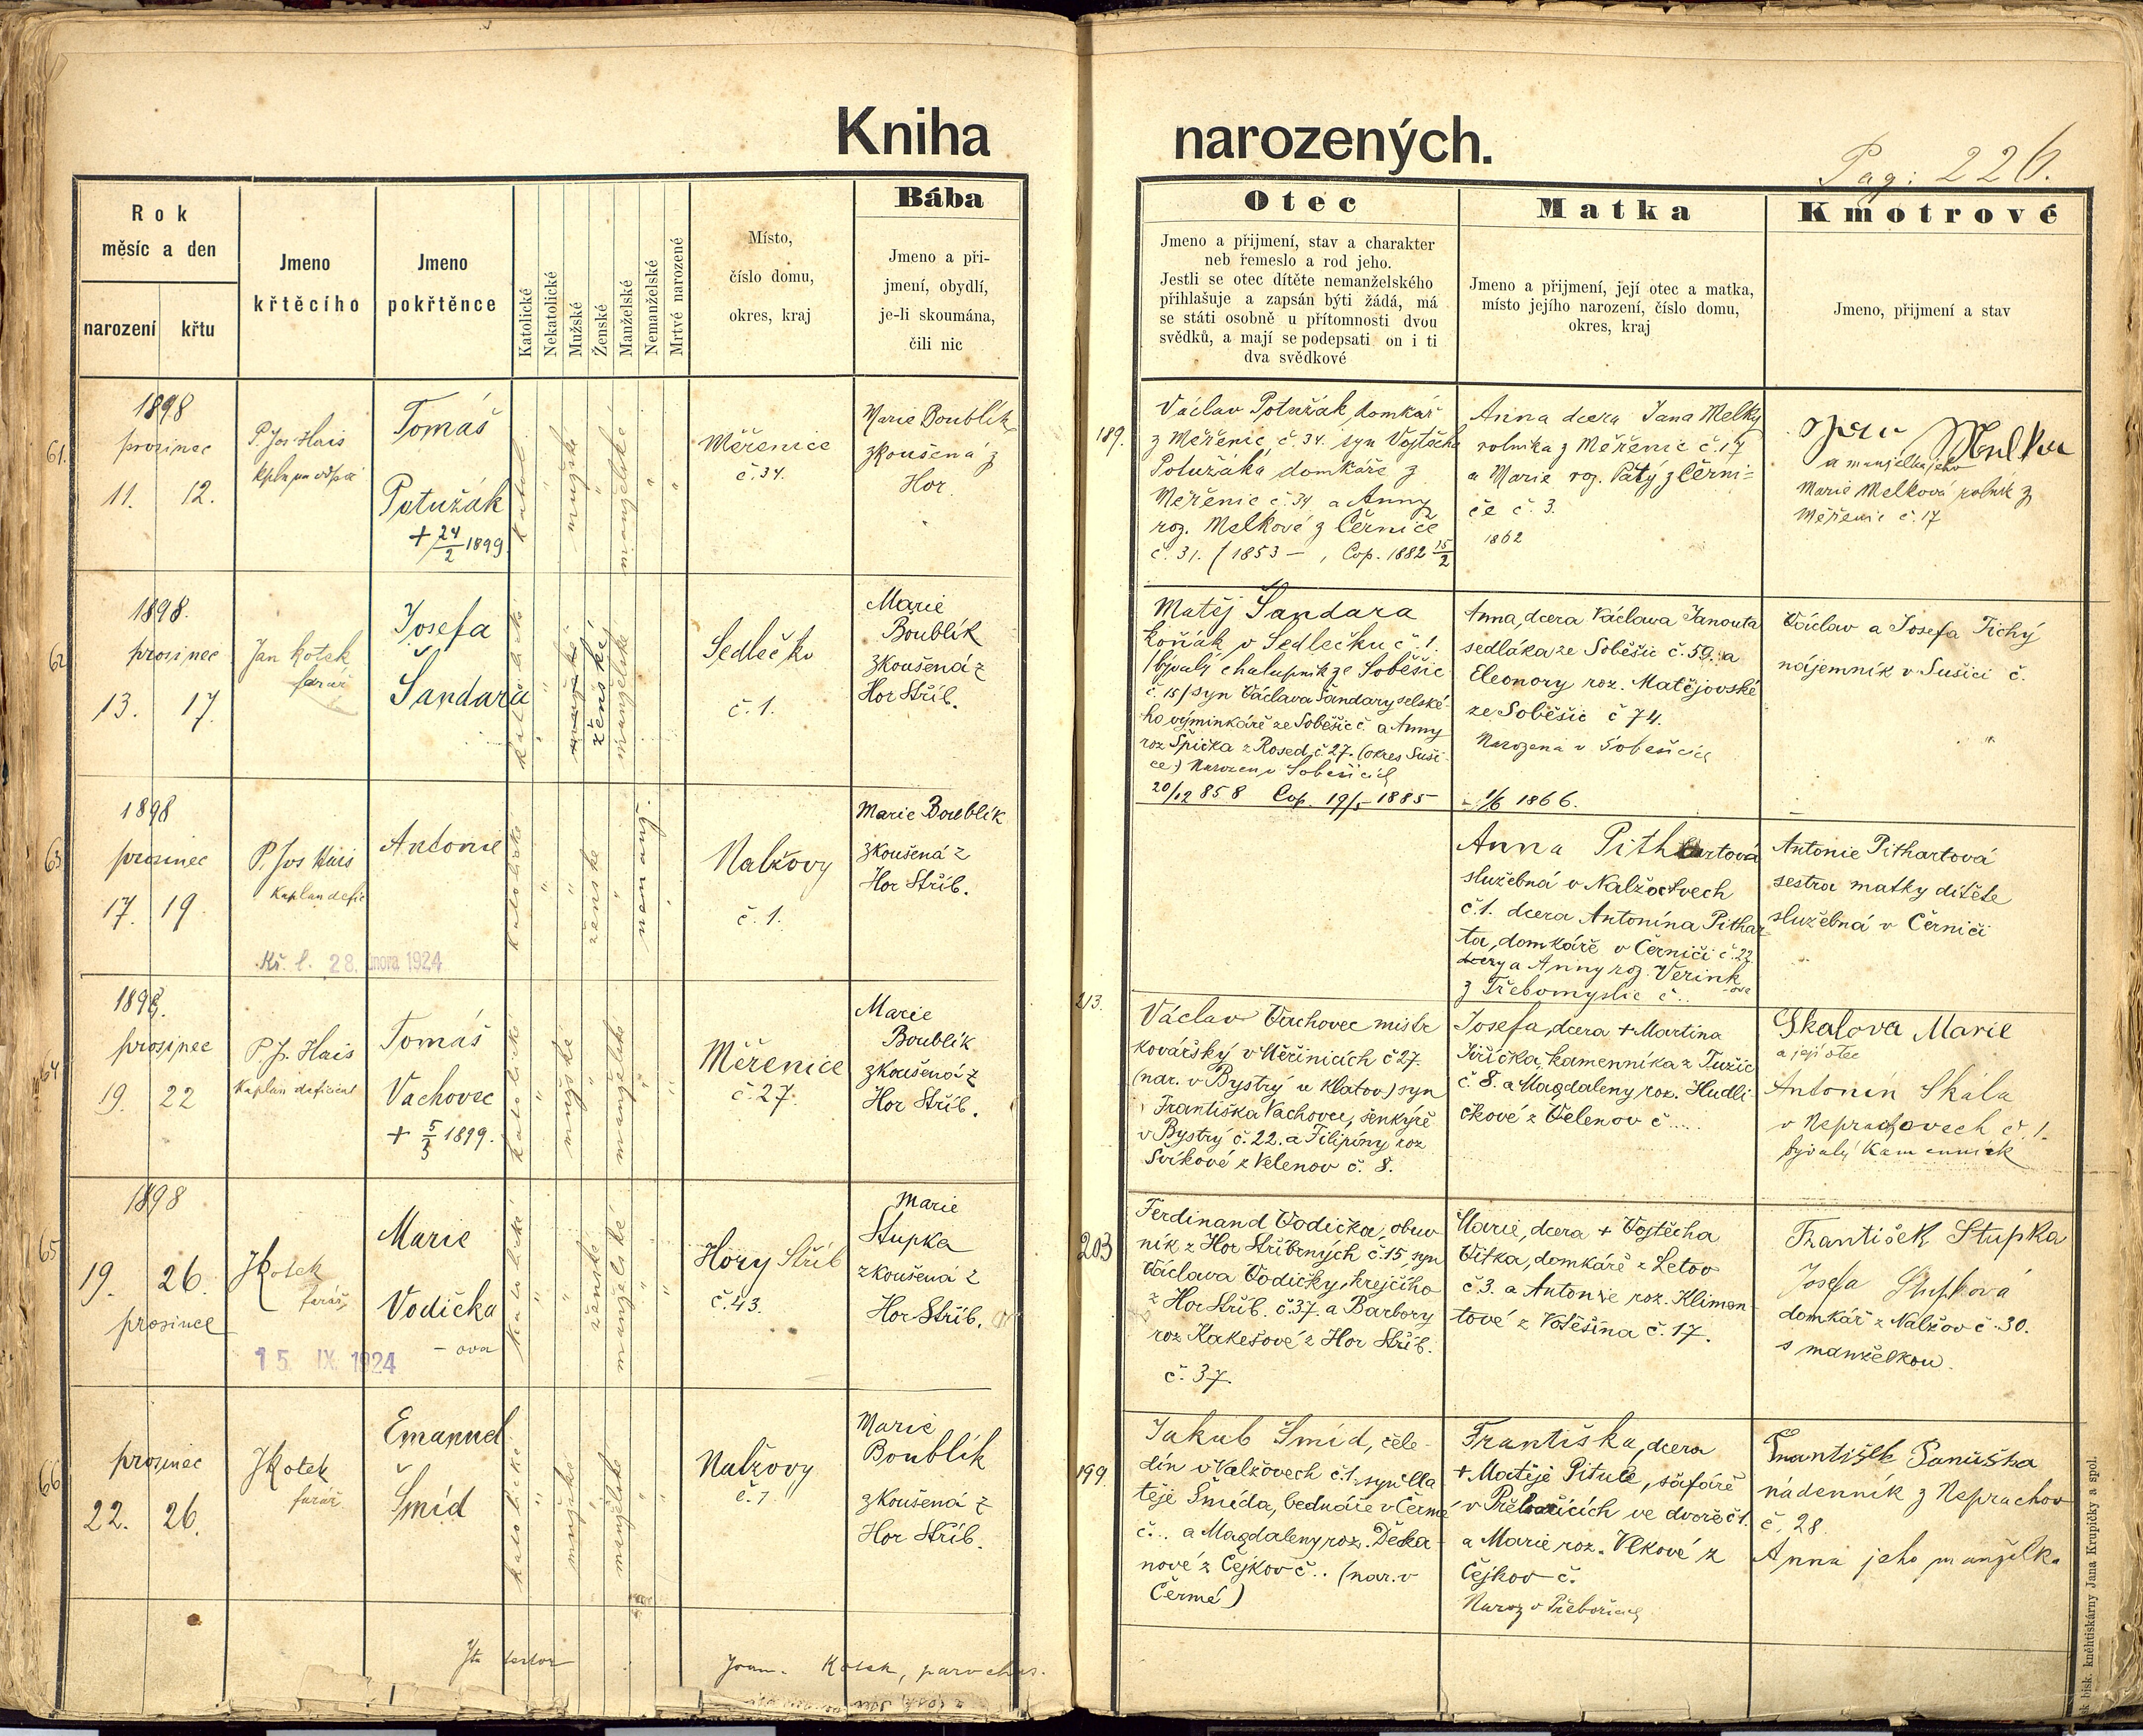 Kniha narozených.
Pag: 226.
Rok
měsíc a den
narození
křtu
Jmeno
křtěcího
Jmeno
pokřtěnce
Katolické
Nekatolické
Mužské
Ženské
Manželské
Nemanželské
Mrtvě narozené
Místo,
číslo domu,
okres, kraj
Bába
Jmeno a při-
jmení, obydlí,
je-li skoumána,
čili nic
Otec
Jmeno a přijmení, stav a charakter
neb řemeslo a rod jeho.
Jestli se otec dítěte nemanželského
přihlašuje a zapsán býti žádá, má
se státi osobně u přítomnosti dvou
svědků, a mají se podepsati on i ti
dva svědkové
Matka
Jmeno a přijmení, její otec a matka,
místo jejího narození, číslo domu,
okres, kraj
Kmotrové
Jmeno, přijmení a stav
61.
1898
prosinec
11. 12.
P. Jos Hais
Tomáš
Potužák
+ 24/2 1899
mužské
manželské
Měřenice
č. 34.
Marie Boublík
zkoušená z
Hor
189.
Václav Potužák, domkář
z Měřenic, č. 34. syn Vojtěcha
Potužáka domkáře z
Měřenic č. 34 a Anny
roz. Melkové z Černice
č. 31. (1853 — , Cop. 1882 15/2
Anna dcera Jana Melky
rolníka z Měřenic č. 17
a Marie roz. Patý z Černi-
če č. 3.
1862
Melka
a manželka jeho
Marie Melková rolník z
Měřenic č. 17
62
1898.
prosinec
13. 17.
Jan Kotek
farář
Josefa
Šandara
katolické
mužské
ženské
manželské
Sedlečko
č. 1.
Marie
Boublík
zkoušená z
Hor Stříb.
Matěj Šandara
koňák v Sedlečku č. 1.
/bývalý chalupník ze Soběšic
č. 15/ syn Václava Šandary selské-
ho výminkáře ze Soběšic č. a Anny
roz Špička z Rosed. č. 27. (okres Suši-
ce) Narozen v Soběšicích
20/12 858 Cop. 19/5 1885
Anna, dcera Václava Janouta
sedláka ze Soběšic č. 59. a
Eleonory roz. Matějovské
ze Soběšic č 74.
Narozena v Soběšicích
1/6 1866.
Václav a Josefa Tichý
nájemník v Sušici č.
63
1898
prosinec
17. 19
P. Jos Hais
Kaplan defic
Kř. l. 28. února 1924
Antonie
katolické
ženské
nemanž.
Nalžovy
č. 1.
Marie Boublík
zkoušená z
Hor Stříb.
Anna Pithartová
služebná v Nalžovech
č. 1. dcera Antonína Pithar-
ta, domkáře v Černiči č. 22
dcery a Anny roz. Verink
-ové
z Třebomyslic č..
Antonie Pithartová
sestra matky dítěte
služebná v Černiči
64
1898.
prosinec
19. 22
P. J. Hais
Kaplan deficient
Tomáš
Vachovec
+ 5/3 1899.
katolické
mužské
manželské
Měřenice
č. 27.
Marie
Boublík
zkoušená z
Hor Stříb.
213.
Václav Vachovec mistr
kovářský v Měřinicích č 27.
(nar. v Bystrý u Klatov) syn
Františka Vachovce, šenkýře
v Bystrý č. 22. a Filipíny roz
Svíkové z Velenov č. 8.
Josefa, dcera + Martina
Jiříčka, kamenníka z Tužic
č. 8. a Magdaleny roz. Hudli-
čkové z Velenov č.....
Skalova Marie
a její otec
Antonín Skála
v Neprachovech č. 1.
bývalý kamenník
65
1898
19. 26.
prosince
J Kotek
farář
15. IX. 1924
Marie
Vodička
- ova
katolické
ženské
manželské
Hory Stříb
č. 43.
Marie
Stupka
zkoušená z
Hor Stříb.
203
Ferdinand Vodička, obuv-
ník z Hor Stříbrných č. 15, syn
Václava Vodičky, krejčího
z Hor Stříb. č. 37. a Barbory
roz Kakešové z Hor Stříb.
č. 37.
Marie, dcera + Vojtěcha
Vítka, domkáře z Letov
č. 3. a Antonie roz. Klimen-
tové z Votěšína č. 17.
František Stupka
Josefa Stupková
domkář z Nalžov č. 30.
s manželkou.
66
prosinec
22. 26.
J Kotek
farář
Emanuel
Šmíd
katolické
mužské
manželské
Nalžovy
č. 1
Marie
Boublík
zkoušená z
Hor Stříb.
199.
Jakub Šmíd, čele-
dín v Nalžovech č. 1. syn Ma-
těje Šmída, bednáře v Čermé
č... a Magdaleny roz. Děka-
nové z Čejkov č.. (nar. v
Čermé)
Františka, dcera
+ Matěje Pitule, šafáře
v Přebořicích ve dvoře č 1.
a Marie roz. Vlkové z
Čejkov č.
Naroz v Přebořicích
František Panuška
nádenník z Neprachov
č. 28.
Anna jeho manželka
Joan. Kotek, parochus.
bisk. knihtiskárny Jana Krupičky a spol.